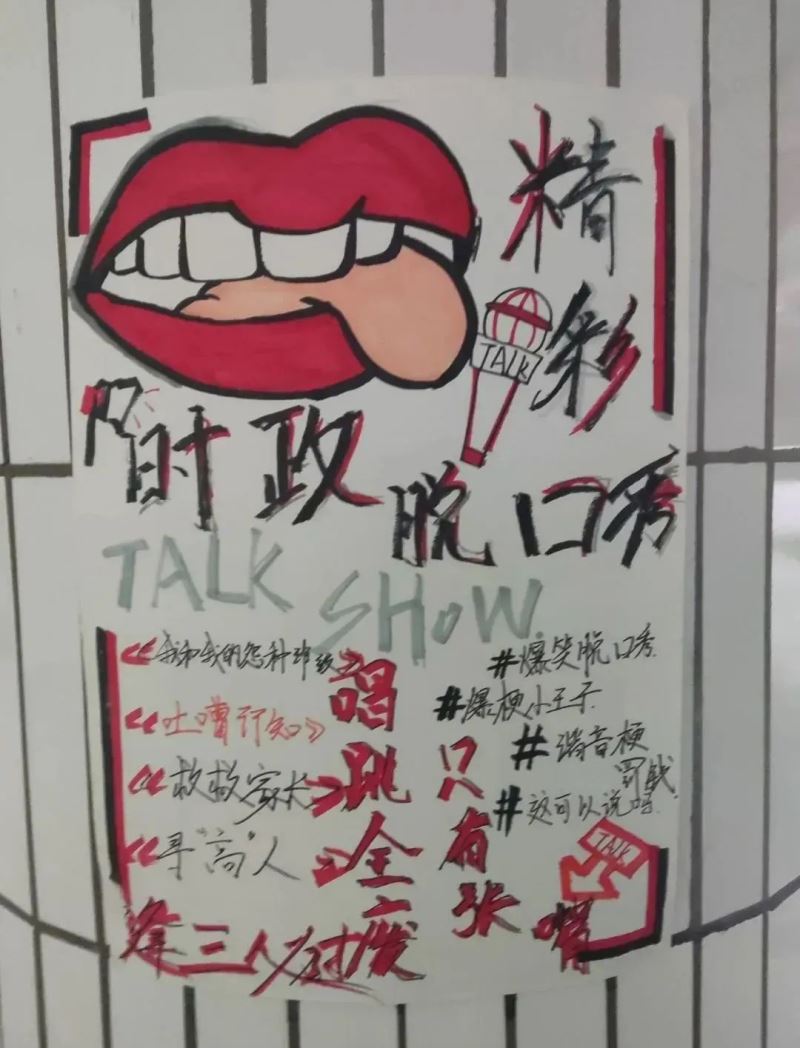 精彩
TALK
时政
脱口秀
TALK
SHOW
《我和我的怨种班级》
《吐嘈行知》
《救救家长》
《寻“高”人》
唱跳全废
只有张嘴
#爆笑脱口秀
#爆梗小王子
#谐音梗
罚钱
#这可以说吗
TALK
三人